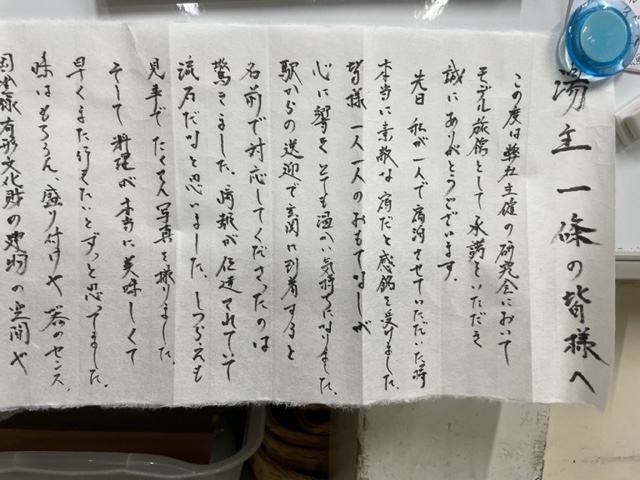 湯主一條の皆様へ
この度は弊社主催の研究会において
モデル旅館として承諾をいただき
誠にありがとうございます。
先日 私が一人で宿泊させていただいた時
本当に素敵な宿だと感銘を受けました。
皆様 一人一人のおもてなしが
心に響き とても温かい気持ちになりました。
駅からの送迎で玄関に到着すると
名前で対応してくださったのは
驚きました。情報が伝達されていて
流石だなと思いました。しつらえも
見事で たくさん写真を撮りました。
そして 料理が本当に美味しくて
早くまた行きたいとずっと思ってました。
味はもちろん、盛り付けや 器のセンス、
国登録有形文化財の建物の空間や